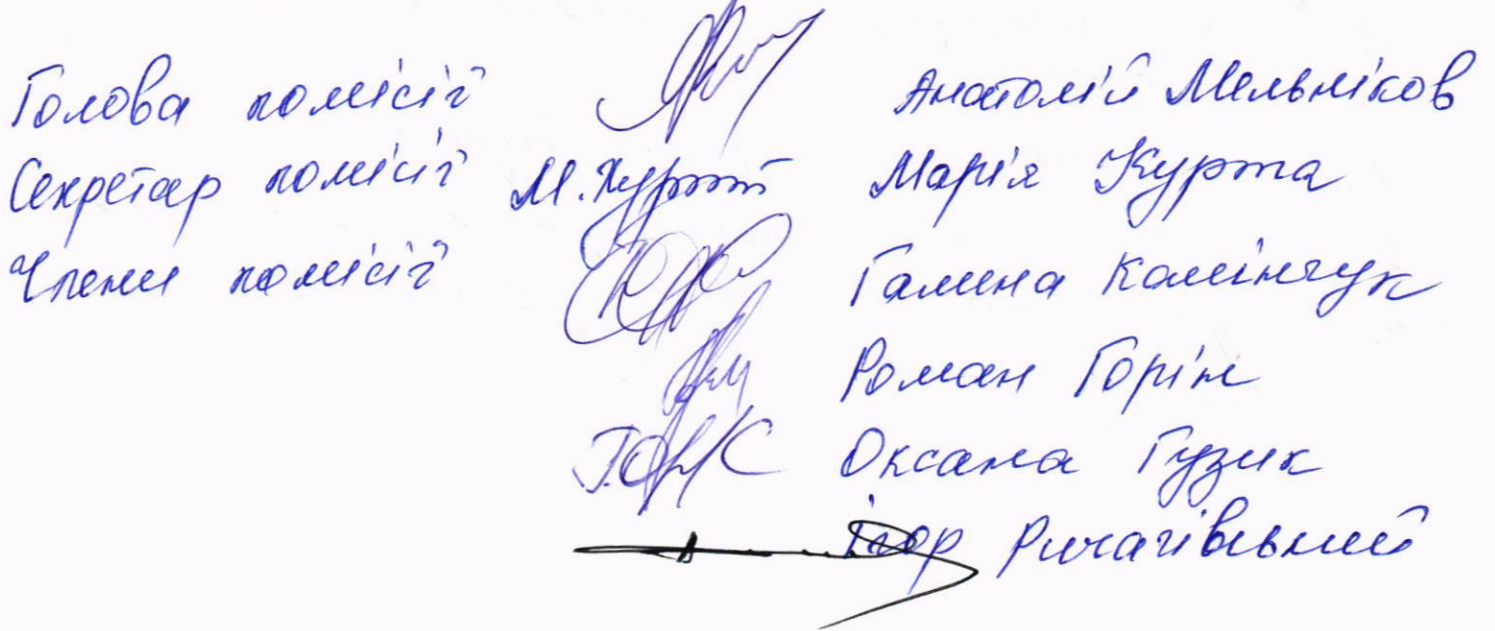 Голова комісії Анатолій Мельніков
Секретар комісії М. Курт Марія Курта
Члени комісії Галина Камінчук
Роман Горін
Оксана Гузик
Ігор